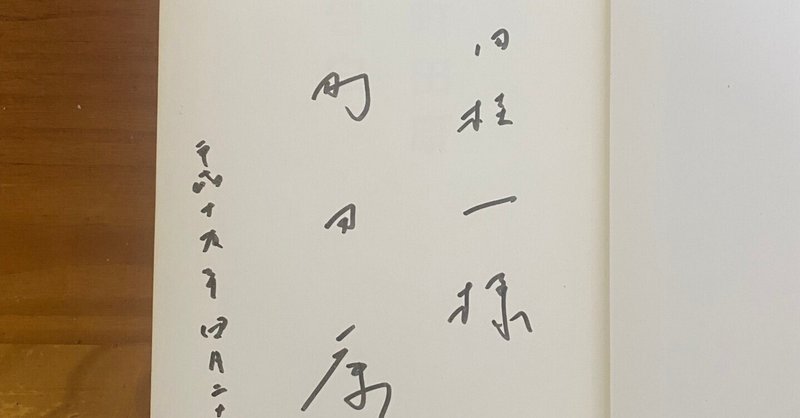 桂一様
町田康
平成十九年四月二十